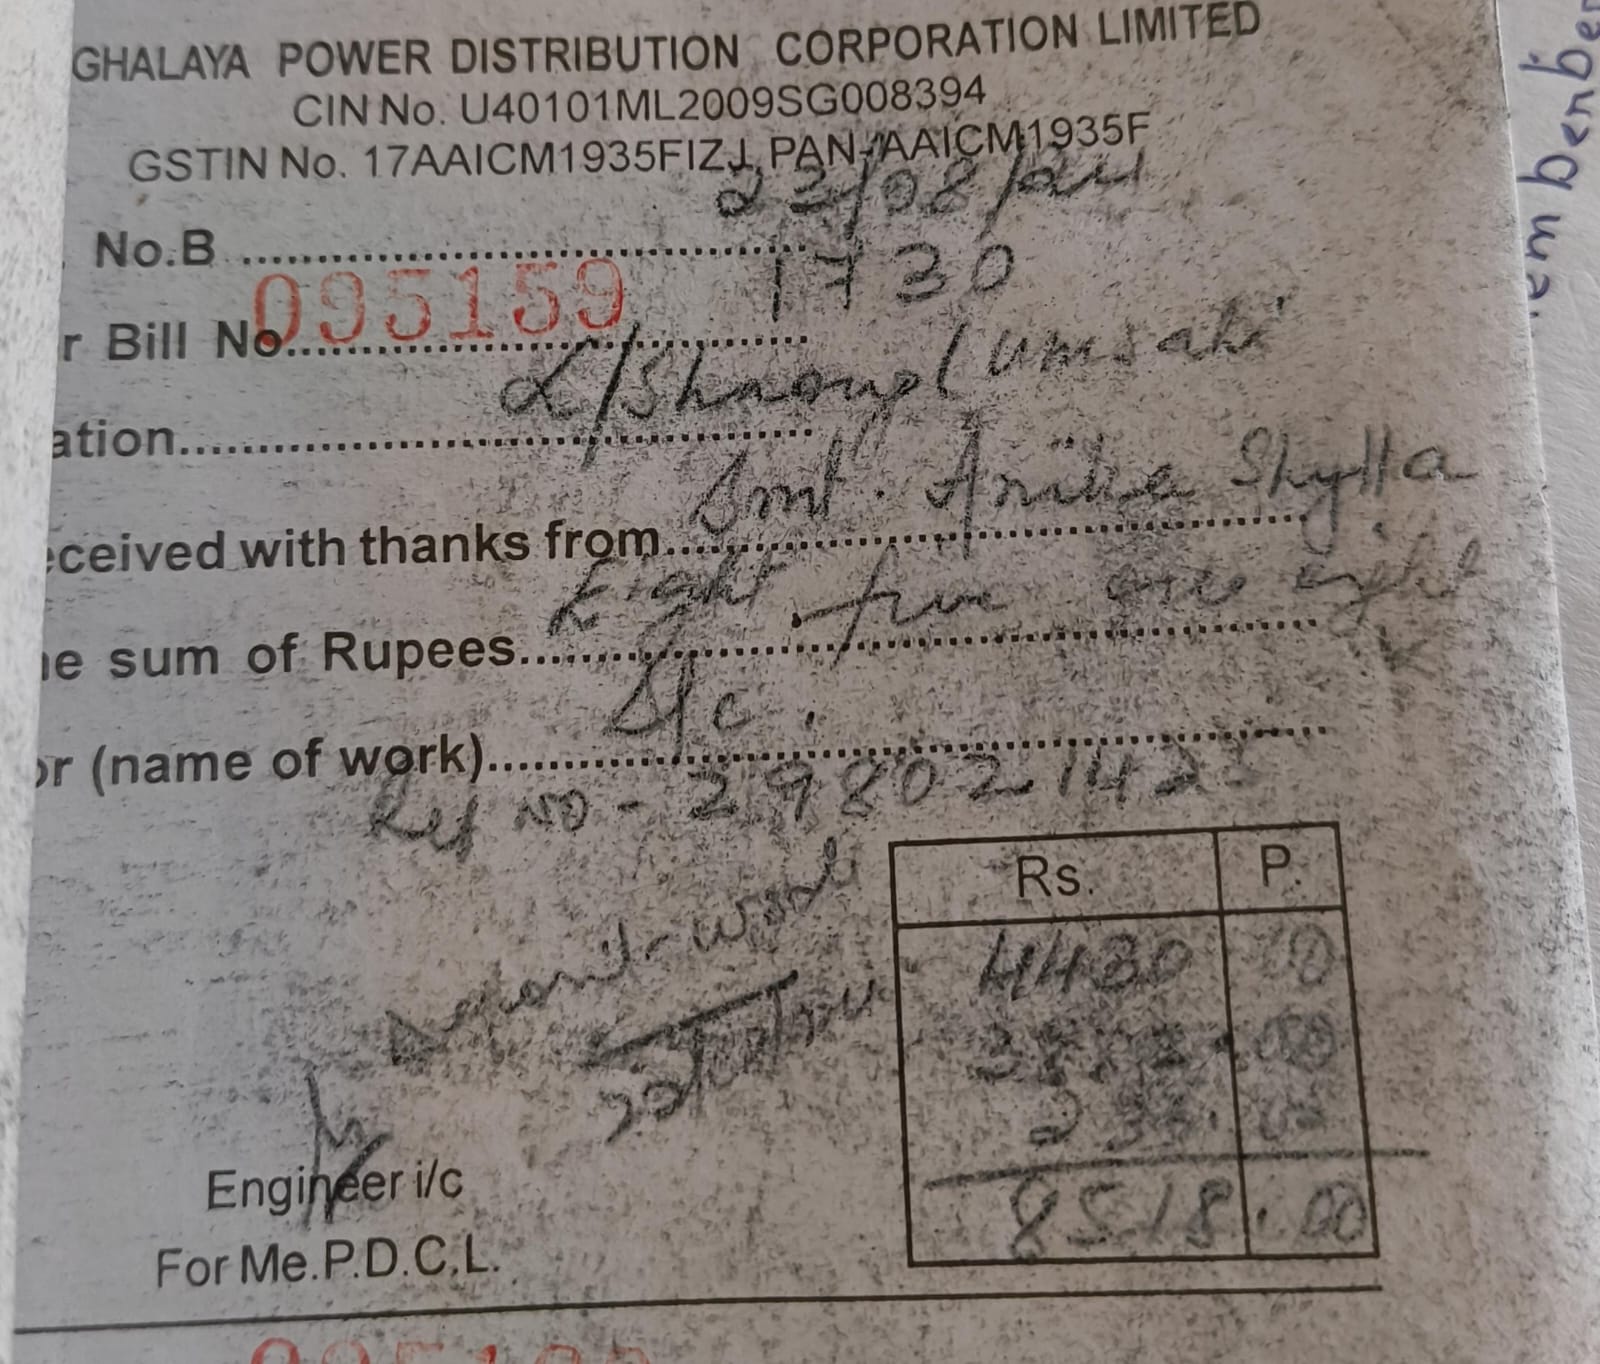 GHALAYA POWER DISTRIBUTION CORPORATION LIMITED
CIN No. U40101ML2009SG008394
GSTIN No. 17AAICM1935FIZJ, PAN-AAICM1935F
23/08/24
No.B
095159
1730
r Bill No
L/Shnong Umsahi
ation
Smt. Anika Shylla
eceived with thanks from
Eight five one eight
he sum of Rupees
S/c.
or (name of work)
Ref NO - 29802142
Rs. P.
4430 00
00
8518.00
Engineer i/c
For Me.P.D.C.L.
em benben